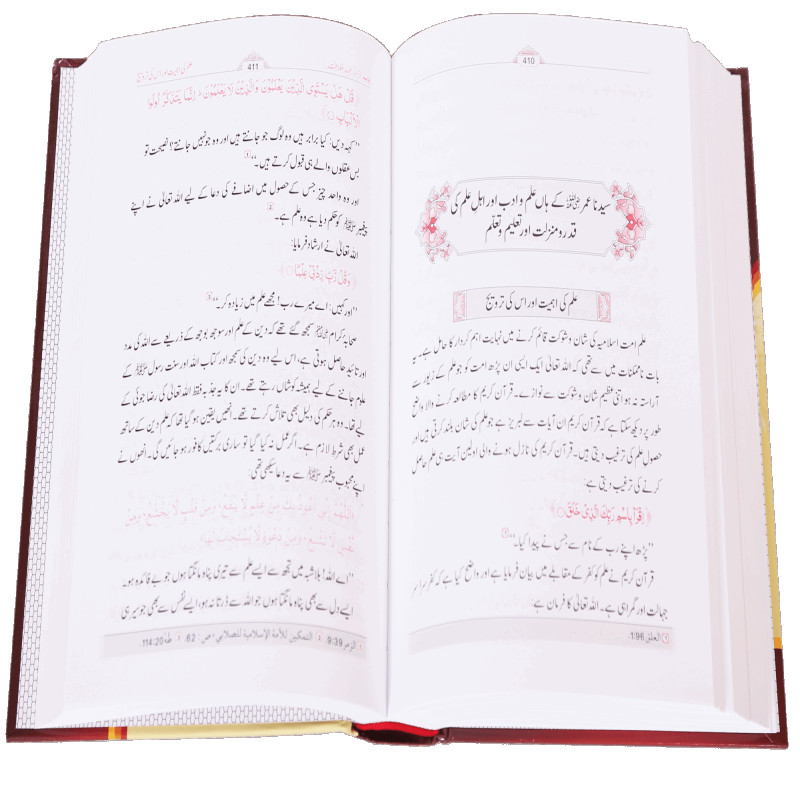 410
سیدنا عمر ﷜ کے ہاں علم و ادب اور اہلِ علم کی
قدر و منزلت اور تعلیم و تعلّم
علم کی اہمیت اور اس کی ترویج
علم امت اسلامیہ کی شان و شوکت قائم کرنے میں نہایت اہم کردار کا حامل ہے۔ یہ
بات ناممکنات میں سے تھی کہ اللہ تعالیٰ ایک ایسی ان پڑھ امت کو جو علم کے زیور سے
آراستہ نہ ہو اتنی عظیم شان و شوکت سے نوازے۔ قرآن کریم کا مطالعہ کرنے والا واضح
طور پر دیکھ سکتا ہے کہ قرآن کریم ان آیات سے لبریز ہے جو علم کی شان بلند کرتی ہیں اور
حصول علم کی ترغیب دیتی ہیں۔ قرآن کریم کی نازل ہونے والی اولین آیت ہی علم حاصل
کرنے کی ترغیب دیتی ہے:
﴿ اِقْرَاْ بِاسْمِ رَبِّكَ الَّذِيْ خَلَقَ ۝ ﴾
”پڑھ اپنے رب کے نام سے جس نے پیدا کیا۔“
قرآن کریم نے علم کو کفر کے مقابلے میں بیان فرمایا ہے اور واضح کیا ہے کہ کفر سراسر
جہالت اور گمراہی ہے۔ اللہ تعالیٰ کا فرمان ہے:
العلق 1:96.
411
علم کی اہمیت اور اس کی ترویج
﴿ قُلْ هَلْ يَسْتَوِي الَّذِيْنَ يَعْلَمُوْنَ وَالَّذِيْنَ لَا يَعْلَمُوْنَ ؕ اِنَّمَا يَتَذَكَّرُ اُولُوا
الْاَلْبَابِ ۝ ﴾
”کہہ دیں: کیا برابر ہیں وہ لوگ جو جانتے ہیں اور وہ جو نہیں جانتے؟ نصیحت تو
بس عقلوں والے ہی قبول کرتے ہیں۔“
اور وہ واحد چیز جس کے حصول میں اضافے کی دعا کے لیے اللہ تعالیٰ نے اپنے
پیغمبر ﷺ کو حکم دیا ہے وہ علم ہے۔
اللہ تعالیٰ نے ارشاد فرمایا:
﴿ وَقُلْ رَّبِّ زِدْنِيْ عِلْمًا ۝ ﴾
”اور کہیں: اے میرے رب! مجھے علم میں زیادہ کر۔“
صحابہ کرام سمجھ گئے تھے کہ دین کے علم اور سوجھ بوجھ کے ذریعے سے اللہ کی مدد
اور تائید حاصل ہوتی ہے، اس لیے وہ دین کی سمجھ اور کتاب اللہ اور سنت رسول ﷺ کے
علوم جاننے کے لیے ہمیشہ کوشاں رہتے تھے۔ ان کا یہ جذبہ فقط اللہ تعالیٰ کی رضا جوئی کے
لیے تھا۔ وہ ہر حکم کی دلیل بھی تلاش کرتے تھے۔ انھیں یقین ہو گیا تھا کہ علم دین کے ساتھ
عمل بھی شرط لازم ہے۔ اگر عمل نہ کیا گیا تو ساری برکتیں کافور ہو جائیں گی۔ انھوں نے
اپنے محبوب پیغمبر ﷺ سے یہ دعا سیکھی تھی:
اَللّٰهُمَّ اِنِّيْ اَعُوْذُ بِكَ مِنْ عِلْمٍ لَّا يَنْفَعُ، وَمِنْ قَلْبٍ لَّا يَخْشَعُ، وَمِنْ
نَفْسٍ لَّا تَشْبَعُ، وَمِنْ دَعْوَةٍ لَّا يُسْتَجَابُ لَهَا
”اے اللہ! بلاشبہ میں تجھ سے ایسے علم سے تیری پناہ مانگتا ہوں جو بے فائدہ ہو۔
ایسے دل سے بھی پناہ مانگتا ہوں جو اللہ سے ڈرتا نہ ہو، ایسے نفس سے بھی جو سیر ہی
الزمر 9:39. التمكين للأمة الإسلامية للصلابي، ص: 62. طٰهٰ 114:20.